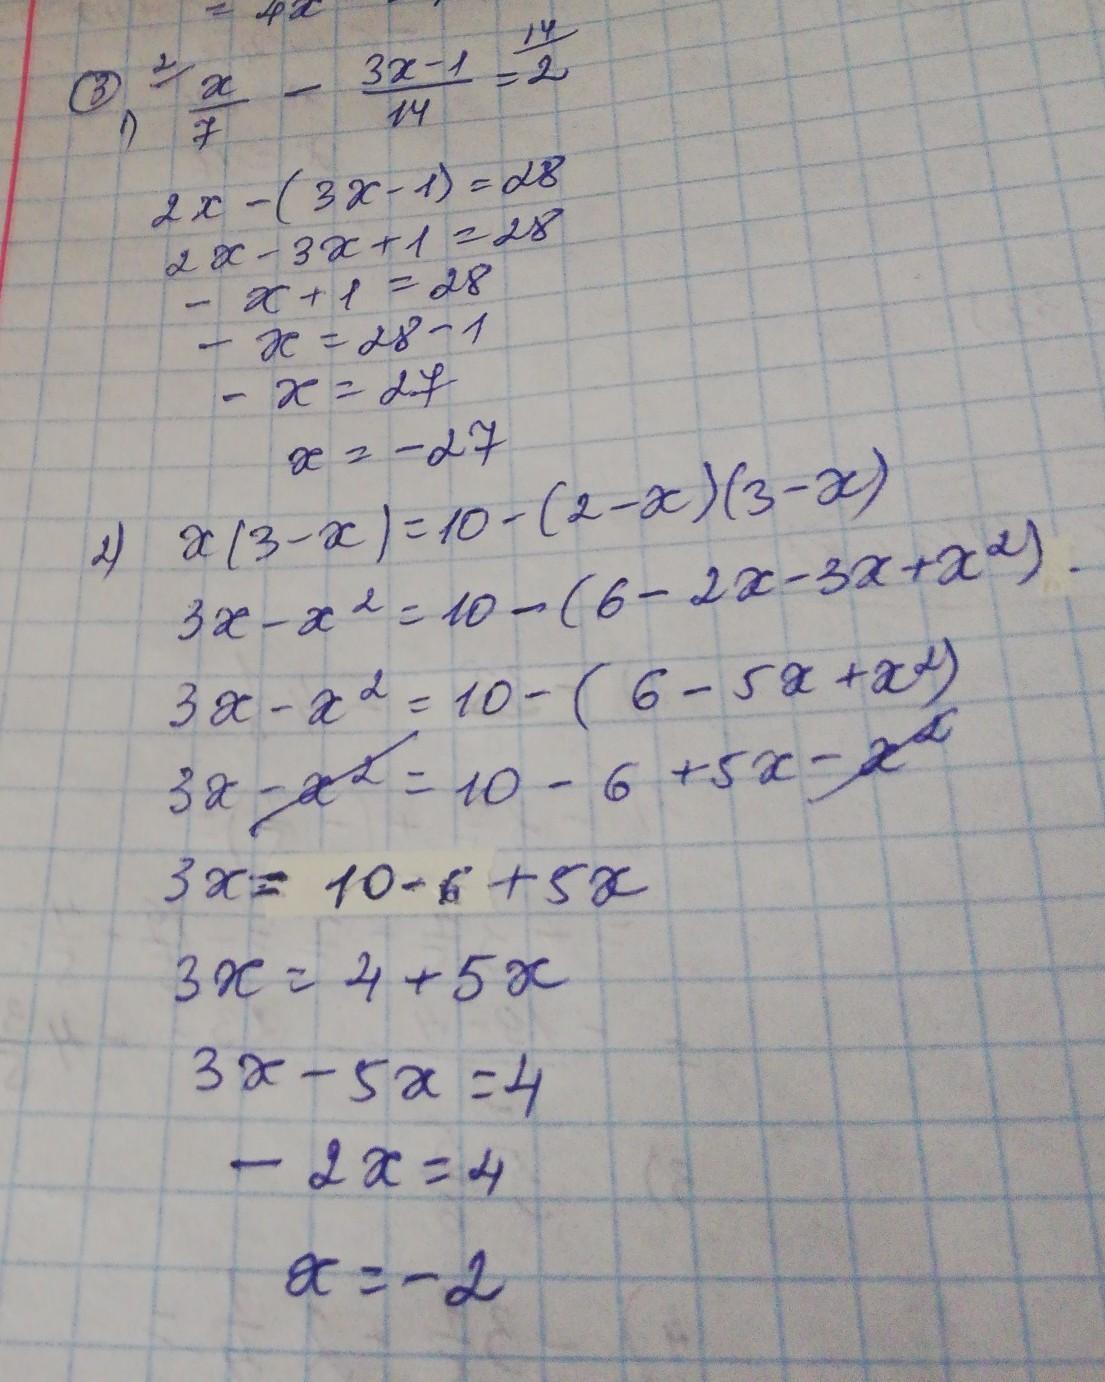 = 4x
③ 1) ²⁄ x/7 - (3x-1)/14 = ¹⁴⁄ 2
2x - (3x-1) = 28
2x - 3x + 1 = 28
- x + 1 = 28
- x = 28 - 1
- x = 27
x = -27
2) x(3-x) = 10 - (2-x)(3-x)
3x - x² = 10 - (6 - 2x - 3x + x²).
3x - x² = 10 - (6 - 5x + x²)
3x - x² = 10 - 6 + 5x - x²
3x = 10 - 6 + 5x
3x = 4 + 5x
3x - 5x = 4
- 2x = 4
x = -2